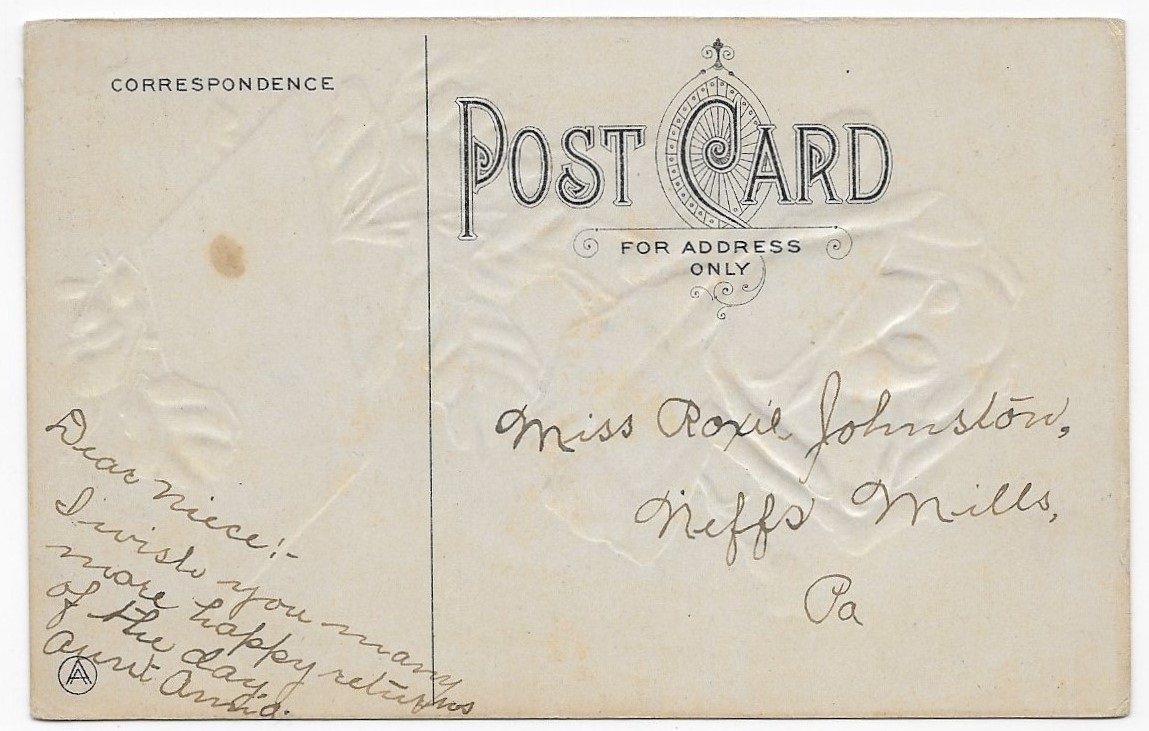 CORRESPONDENCE
POST CARD
FOR ADDRESS
ONLY
Dear Niece:-
I wish you many
more happy returns
of the day.
Aunt Anna.
AA
Miss Roxie Johnston,
Neffs Mills,
Pa